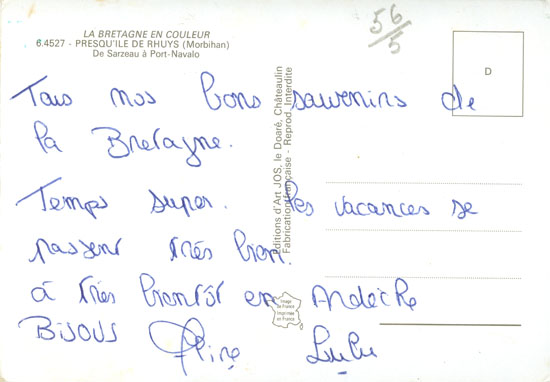 LA BRETAGNE EN COULEUR
6.4527 - PRESQU'ILE DE RHUYS (Morbihan)
De Sarzeau à Port-Navalo
56/5
D
Tous nos bons souvenirs de
la Bretagne.
Temps super. Les vacances se
passent très bien.
à très bientôt en Ardèche
BISOUS
Lulu
Editions d'Art JOS, le Doaré, Châteaulin
Fabrication française - Reprod. Interdite
Image
de France
Imprimée
en France